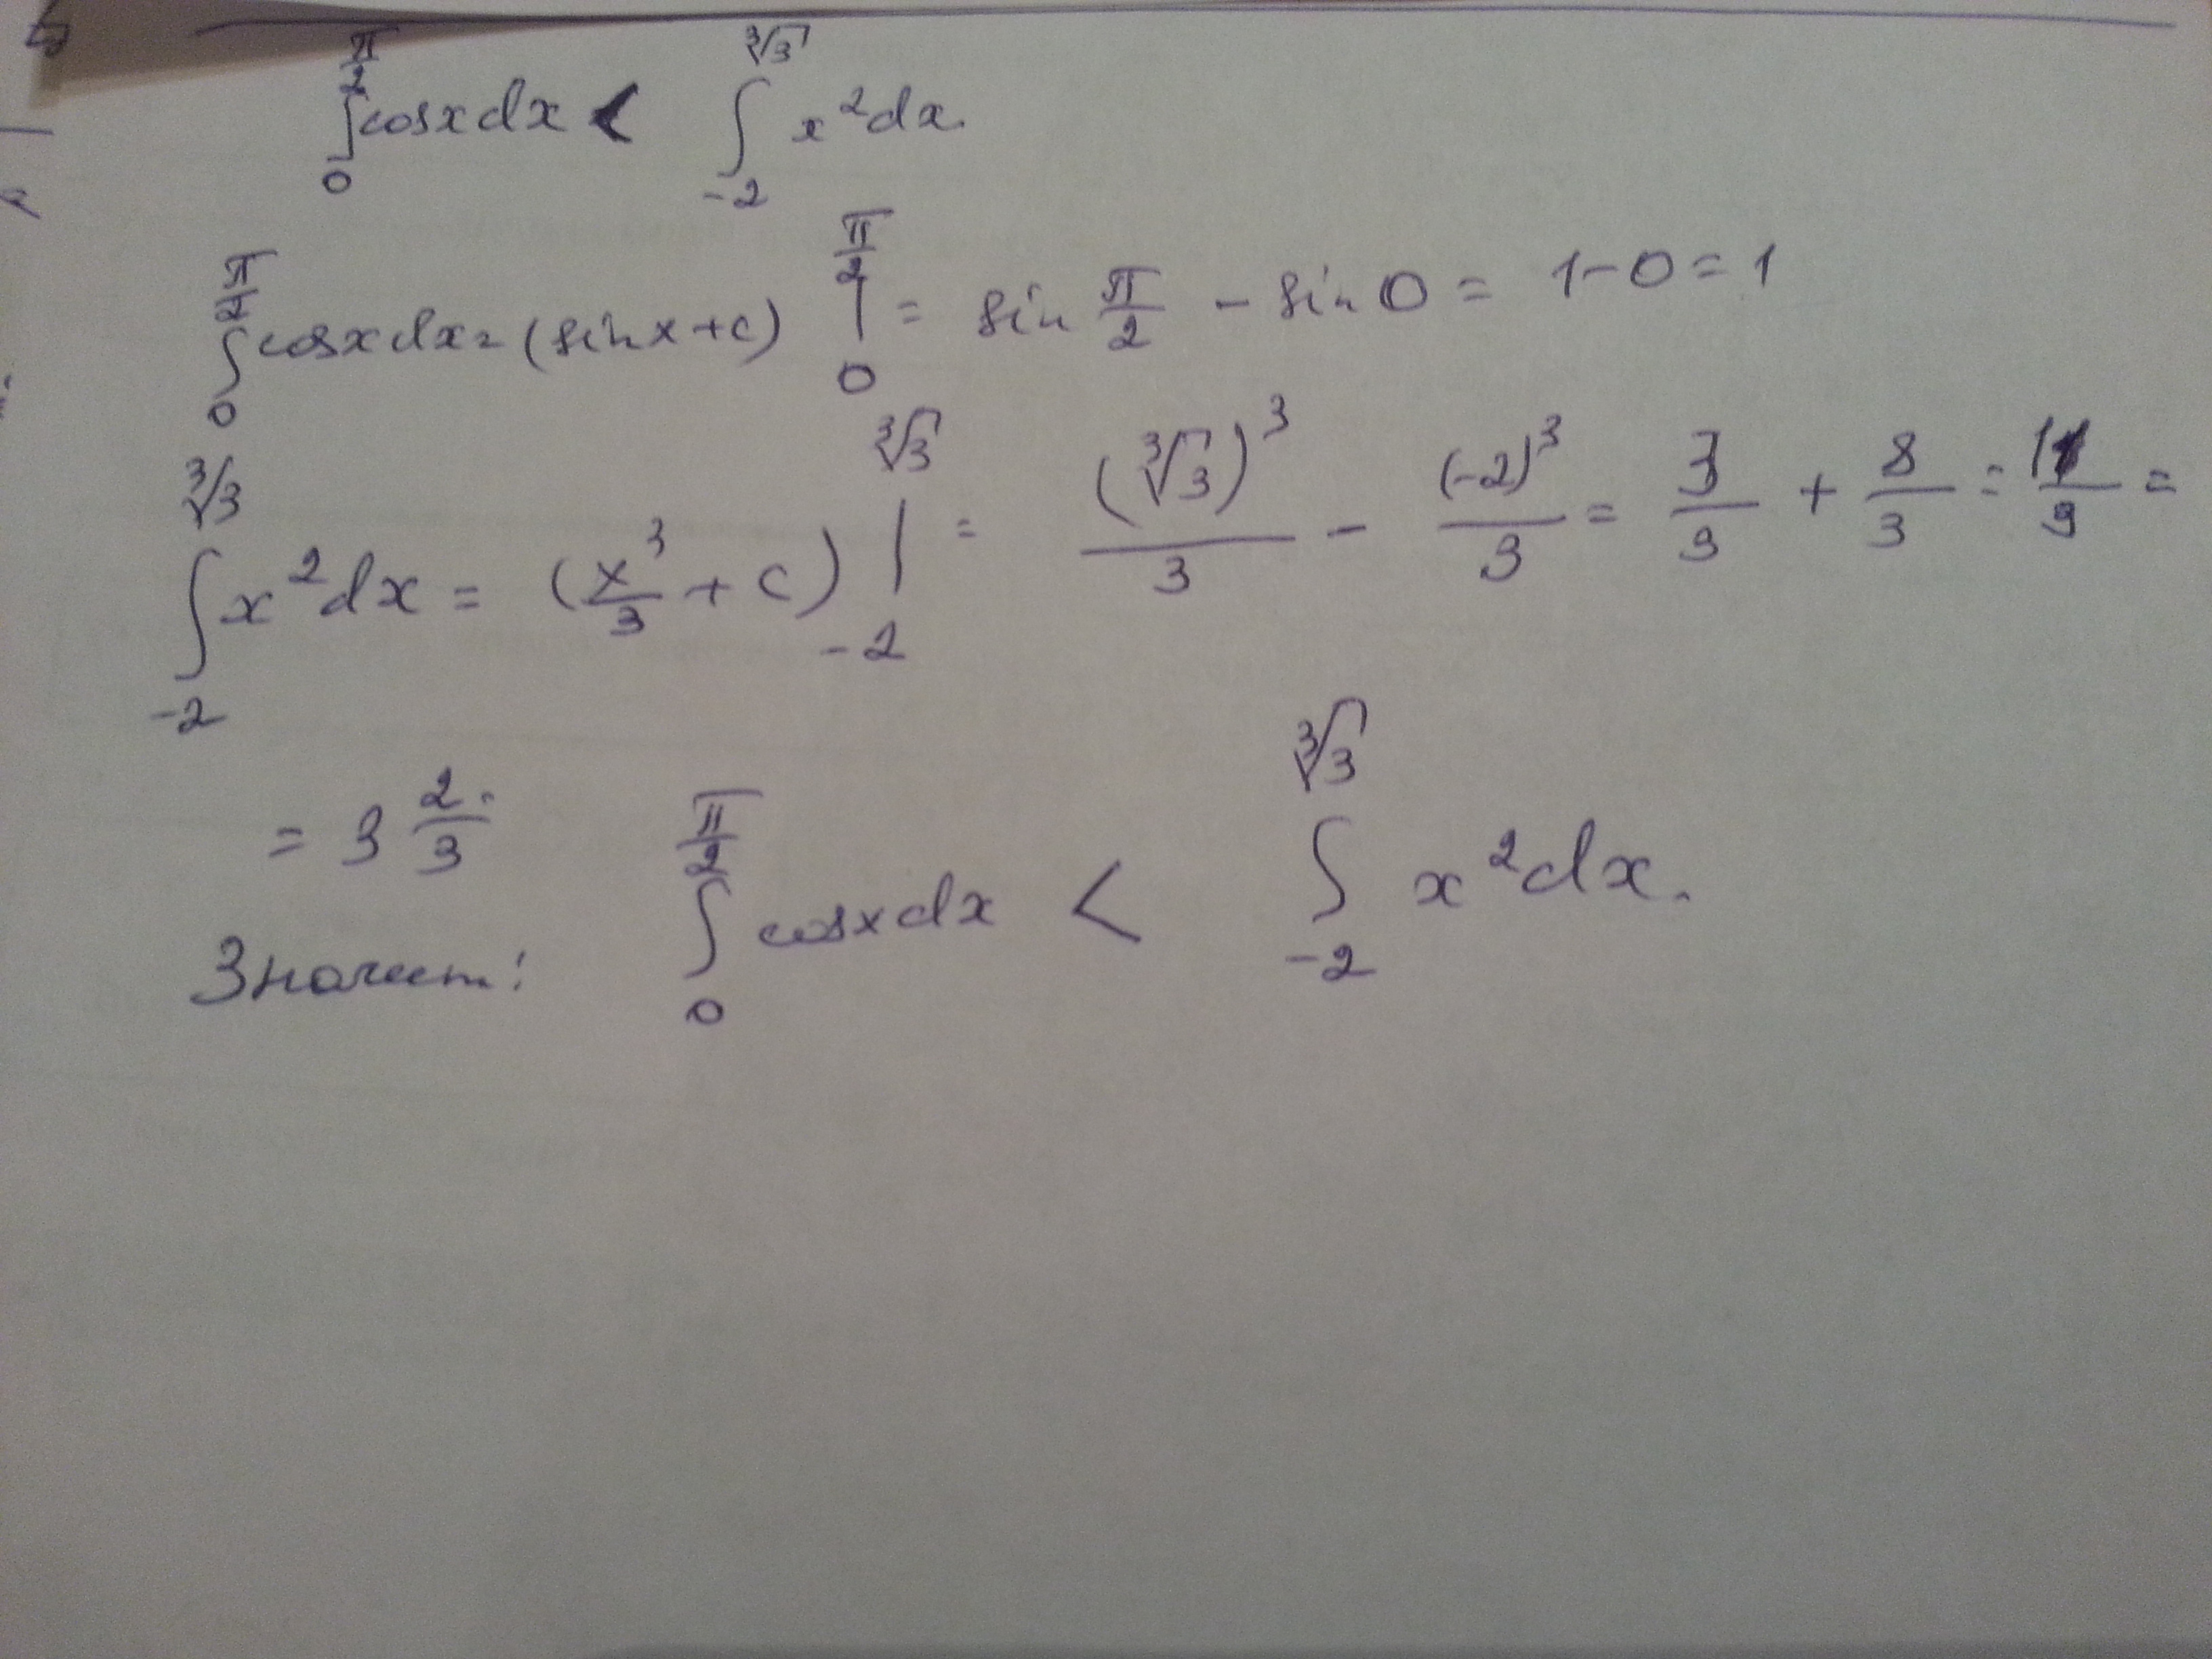 ∫₀^(π/2) cosxdx < ∫₋₂^(∛3) x²dx.
∫₀^(π/2) cosxdx = (sinx+c) |₀^(π/2) = sin π/2 - sin0 = 1-0=1
∫₋₂^(∛3) x²dx = (x³/3 + c) |₋₂^(∛3) = (∛3)³/3 - (-2)³/3 = 3/3 + 8/3 = 11/3 =
= 3 2/3.
Значит: ∫₀^(π/2) cosxdx < ∫₋₂^(∛3) x²dx.